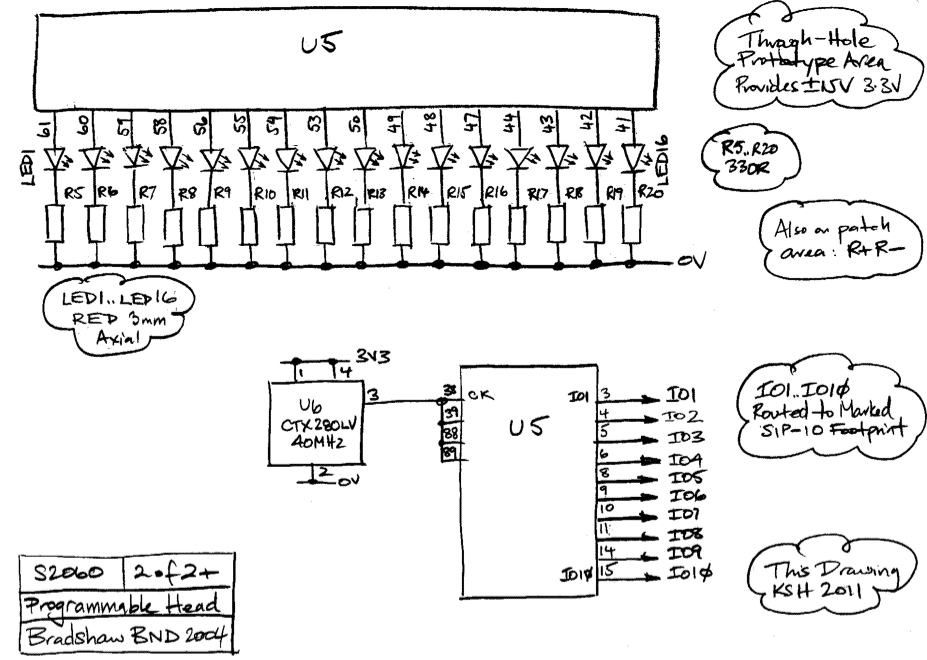 U5
61 60 59 58 56 55 54 53 50 49 48 47 44 43 42 41
LED1
LED16
R5 R6 R7 R8 R9 R10 R11 R12 R13 R14 R15 R16 R17 R18 R19 R20
0V
Through-Hole
Prototype Area
Provides ±15V 3.3V
R5..R20
330R
Also on patch
area: R+ R-
LED1..LED16
RED 3mm
Axial
3V3
1 4
U6
CTX280LV
40MHz
3
2
0V
38
39
88
89
CK
U5
IO1 3 IO1
4 IO2
5 IO3
6 IO4
8 IO5
9 IO6
10 IO7
11 IO8
14 IO9
IO1Ø 15 IO1Ø
IO1..IO1Ø
Routed to Marked
SIP-10 Footprint
This Drawing
KSH 2011
S2060 2 of 2+
Programmable Head
Bradshaw BND 2004